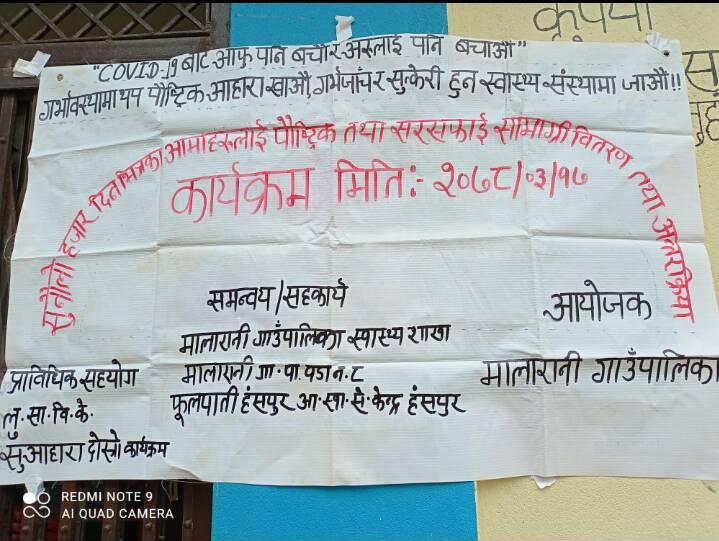 कृपया
स
"COVID-19 बाट आफु पनि बचौं र अरुलाई पनि बचाऔं"
गर्भावस्थामा थप पौष्टिक आहारा खाऔं, गर्भजाँच र सुत्केरी हुन स्वास्थ्य संस्थामा जाऔं!!
सुनौलो हजार दिन भित्रका आमाहरुलाई पौष्टिक तथा सरसफाई सामाग्री वितरण तथा अन्तरक्रिया
कार्यक्रम मिति:- २०७८/०३/१७
समन्वय/सहकार्य
मालारानी गाउँपालिका स्वास्थ्य शाखा
मालारानी गा.पा. वडा नं. ८
फूलपाती हंसपुर आ.स्वा.से.केन्द्र हंसपुर
आयोजक
मालारानी गाउँपालिका
प्राविधिक सहयोग
लु.सा.वि.के.
सुआहारा दोस्रो कार्यक्रम
REDMI NOTE 9
AI QUAD CAMERA